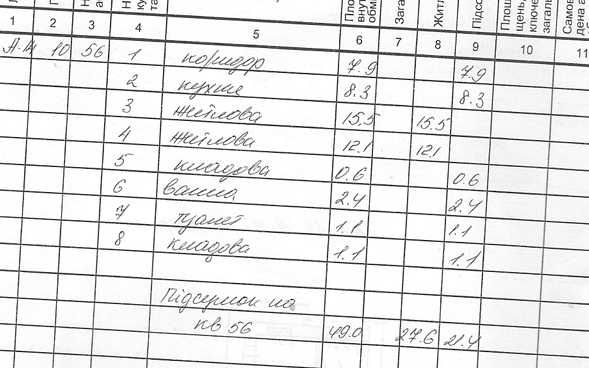 1 2 3 4 5 6 7 8 9 10 11
10 56 1 коридор 7.9 7.9
2 кухня 8.3 8.3
3 житлова 15.5 15.5
4 житлова 12.1 12.1
5 кладова 0.6 0.6
6 ванна 2.4 2.4
7 туалет 1.1 1.1
8 кладова 1.1 1.1
Підсумок по
кв 56 49.0 27.6 21.4